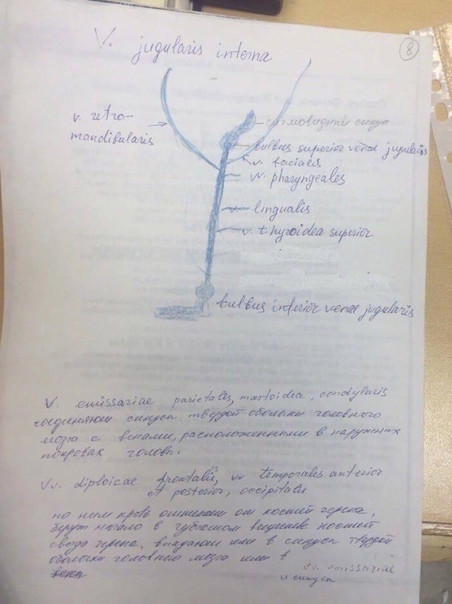 8
V. jugularis interna
v. retro-
mandibularis
сигмовидный синус
bulbus superior venae jugularis
v. facialis
vv. pharyngeales
lingualis
v. thyroidea superior
bulbus inferior venae jugularis
V. emissariae parietalis, mastoidea, condylaris
соединяют синусы твердой оболочки головного
мозга с венами, расположенными в наружных
покровах головы.
Vv. diploicae frontalis, vv temporalis anterior
et posterior, occipitalis
по ним кровь от костей черепа,
берут начало в губчатом веществе костей
свода черепа, впадают или в синусы твердой
оболочки головного мозга или в
vv. emissariae
и синусы